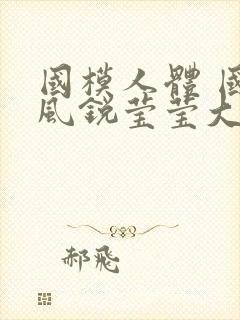 國模人體 國
風鋭莹莹大
郝飛